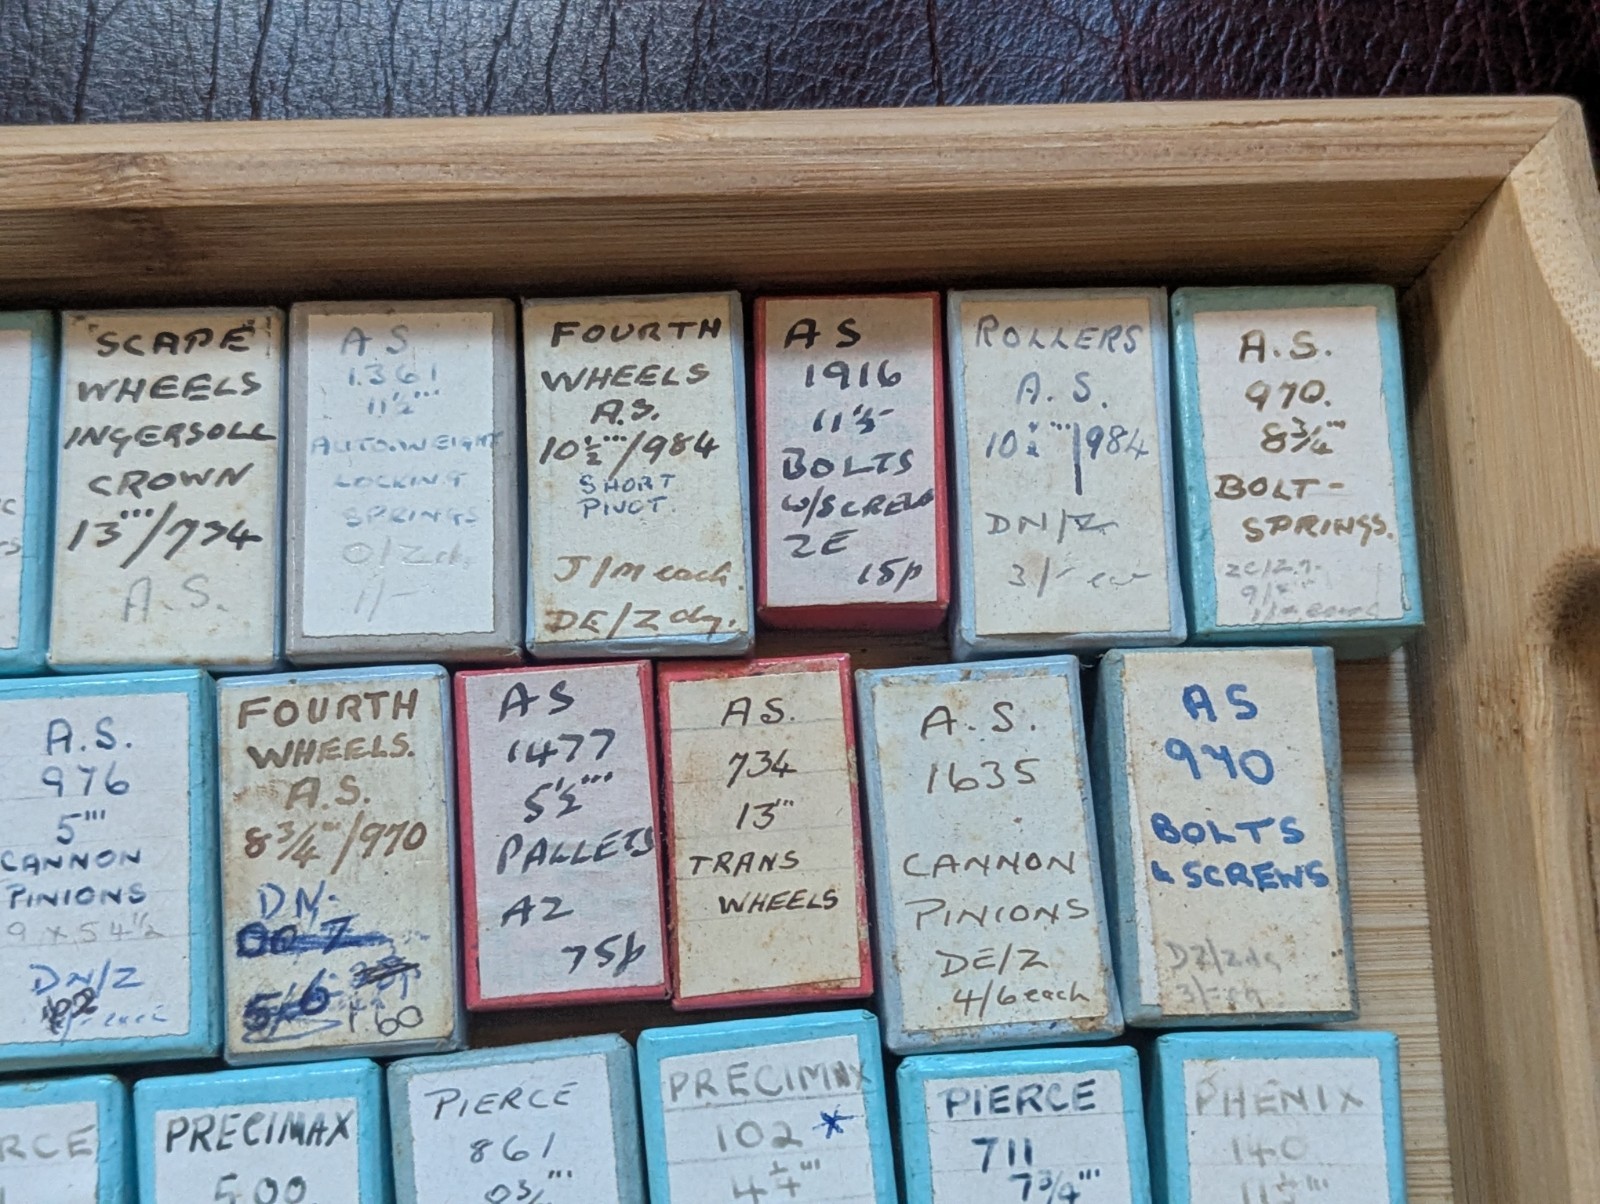 'SCAPE'
WHEELS
INGERSOLL
CROWN
13'''/734
A.S.
AS
1361
11½'''
AUTO.WEIGHT
LOCKING
SPRINGS
1/-
FOURTH
WHEELS
A.S.
10½'''/984
SHORT
PIVOT.
J/M each.
DE/Z
AS
1916
11½
BOLTS
W/SCREW
ZE
15p
ROLLERS
A.S.
10½'''/984
DN/Z
3/-
A.S.
970.
8¾'''
BOLT-
SPRINGS.
A.S.
976
5'''
CANNON
PINIONS
9 x 54½
DN/Z
each
FOURTH
WHEELS.
A.S.
8¾'''/970
DN.
60
AS
1477
5½'''
PALLETS
AZ
75p
AS.
734
13'''
TRANS
WHEELS
A.S.
1635
CANNON
PINIONS
DE/Z
4/6 each
AS
970
BOLTS
& SCREWS
RCE
PRECIMAX
500
PIERCE
861
PRECIMAX
102 *
4¼'''
PIERCE
711
7¾'''
PHENIX
140